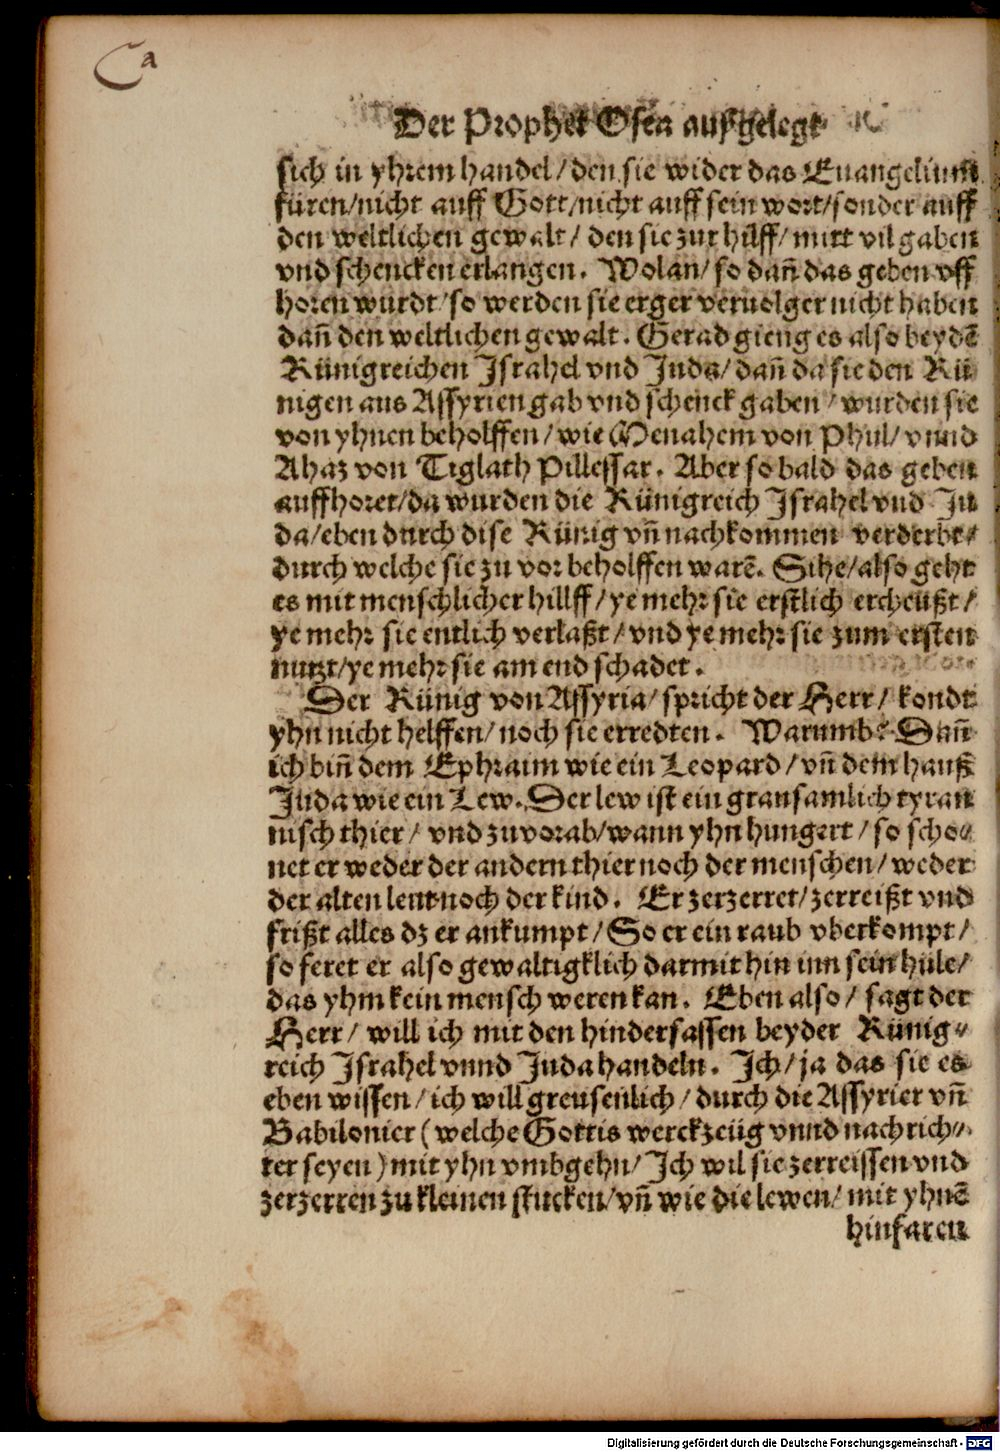 Ca
Der Prophet Osea außgelegt
sich in yhrem handel/den sie wider das Euangelium
füren/nicht auff Gott/nicht auff sein wort/sonder auff
den weltlichen gewalt/ den sie zur hilff/ mitt vil gaben
vnd schencken erlangen. Wolan/ so dañ das geben vff
horen wurdt/so werden sie erger veruolger nicht haben
dañ den weltlichen gewalt. Gerad gieng es also beydē
Künigreichen Israhel vnd Juda/ dañ da sie den Kü
nigen aus Assyrien gab vnd schenck gaben/ wurden sie
von yhnen beholffen/ wie Menahem von Phul/ vnnd
Ahaz von Tiglath Pillessar. Aber so bald das geben
auffhoret/da wurden die Künigreich Israhel vnd Ju
da/eben durch dise Künig vñ nachkommen verderbt/
durch welche sie zu vor beholffen warē. Sihe/also geht
es mit menschlicher hillff/ ye mehr sie erstlich ercheüßt/
ye mehr sie entlich verlaßt/ vnd ye mehr sie zum ersten
nutzt/ye mehr sie am end schadet.
Der Künig von Assyria/ spricht der Herr/ kondt
yhn nicht helffen/ noch sie erredten. Warumb? Dañ
ich biñ dem Ephraim wie ein Leopard/ vñ dem hauß
Juda wie ein Lew. Der lew ist ein grausamlich tyran
nisch thier/ vnd zuvorab/wann yhn hungert/ so scho⸗
net er weder der andern thier noch der menschen/ weder
der alten leut noch der kind. Er zerzerret/ zerreißt vnd
frißt alles dz er ankumpt/ So er ein raub vberkompt/
so feret er also gewaltigklich darmit hin inn sein hüle/
das yhm kein mensch weren kan. Eben also/ sagt der
Herr/ will ich mit den hindersassen beyder Künig⸗
reich Israhel vnnd Juda handeln. Ich/ ja das sie es
eben wissen/ ich will greusenlich/ durch die Assyrier vñ
Babilonier (welche Gottis werckzeüg vnnd nachrich⸗
ter seyen) mit yhn vmbgehn/ Ich wil sie zerreissen vnd
zerzerren zu kleinen stucken/ vñ wie die lewen/ mit yhnē
hinfaren
Digitalisierung gefördert durch die Deutsche Forschungsgemeinschaft - DFG